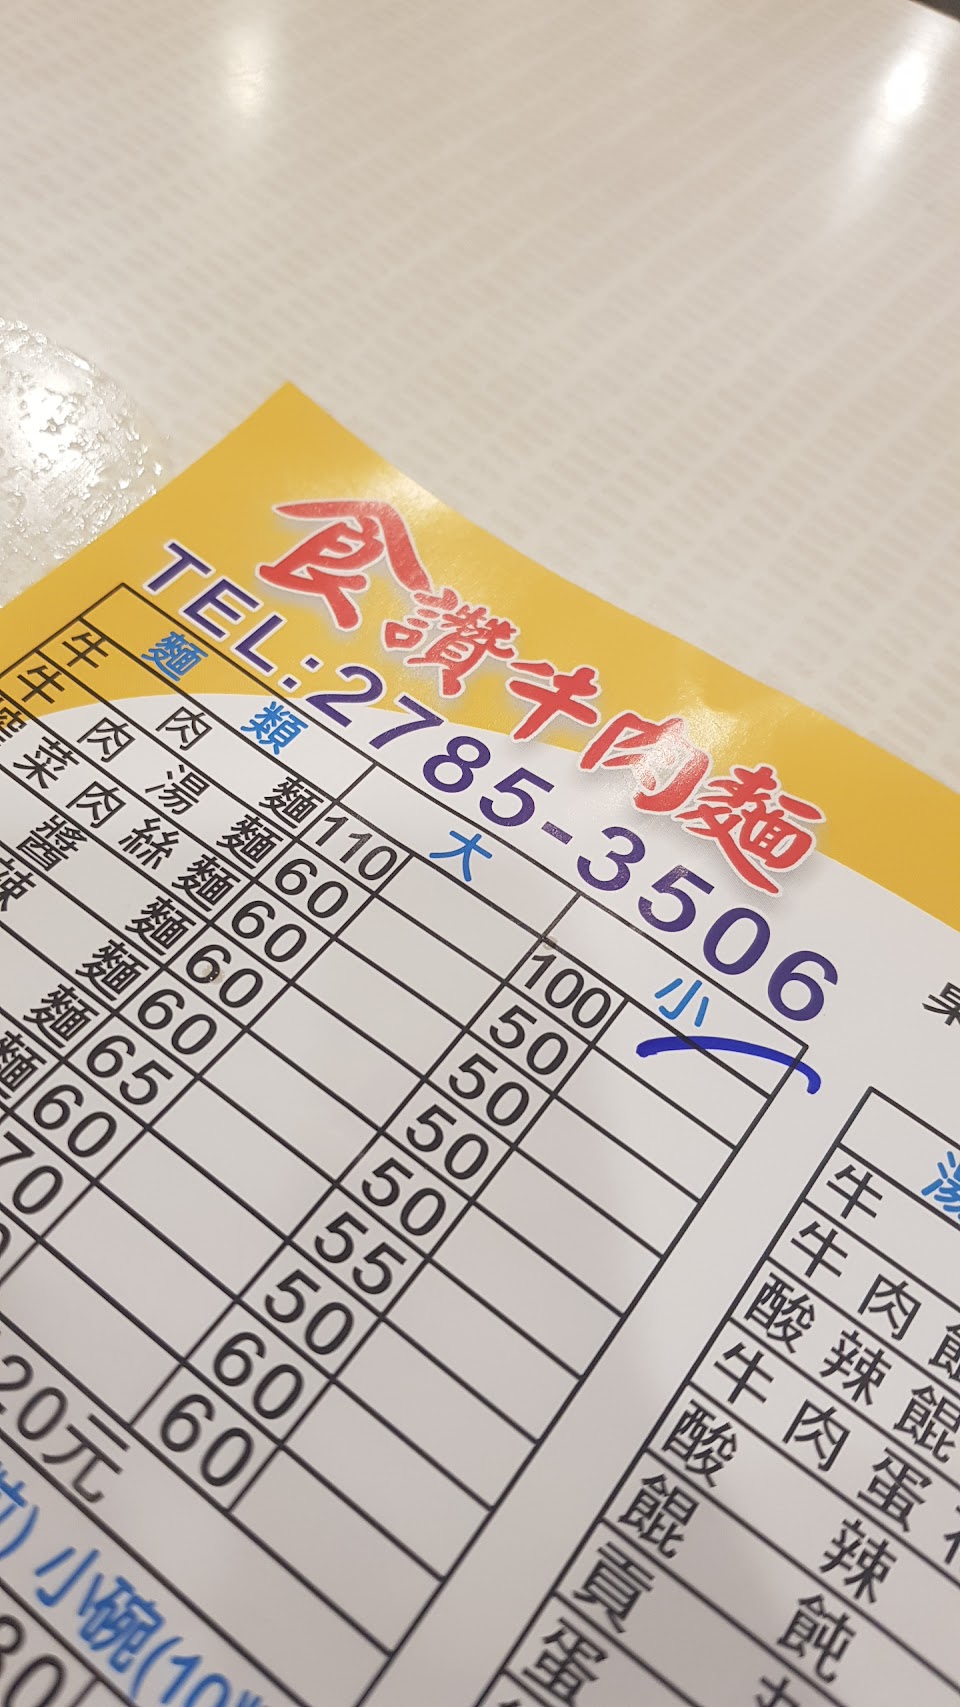 食讚牛肉麵
TEL:2785-3506
麵類 大 小
牛肉麵 110 100
牛肉湯麵 60 50
榨菜肉絲麵 60 50
醬麵 60 50
辣麵 60 50
麵 65 55
麵 60 50
70 60
60
20元
小碗(10
湯
牛
牛肉餛
酸辣餛
牛肉蛋花
酸辣
餛飩
貢
蛋